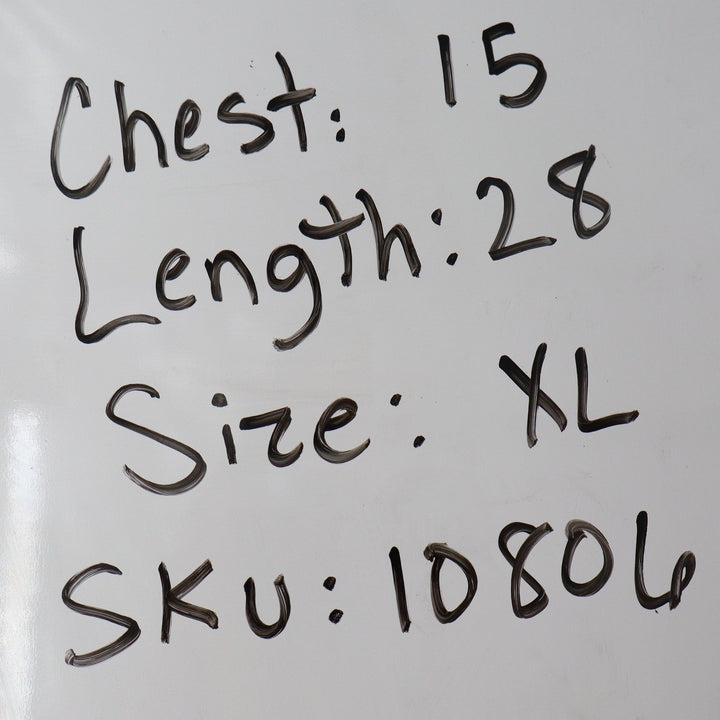 Chest: 15
Length: 28
Size: XL
SKU: 10806